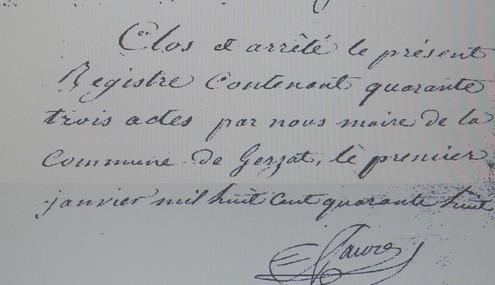 Clos et arrêté le présent
Registre Contenant quarante
trois actes par nous maire de la
Commune de Gerzat, le premier
janvier mil huit cent quarante huit
Faure